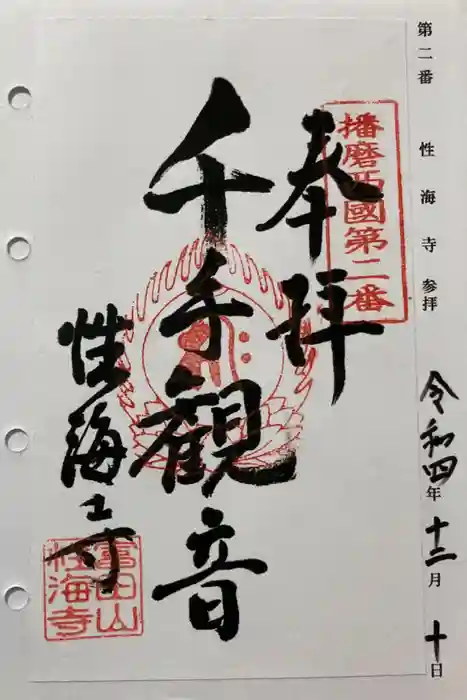 第二番 性海寺 参拝
令和四年十二月十日
播磨西國第二番
奉拝
千手観音
性海寺
富田山
性海寺